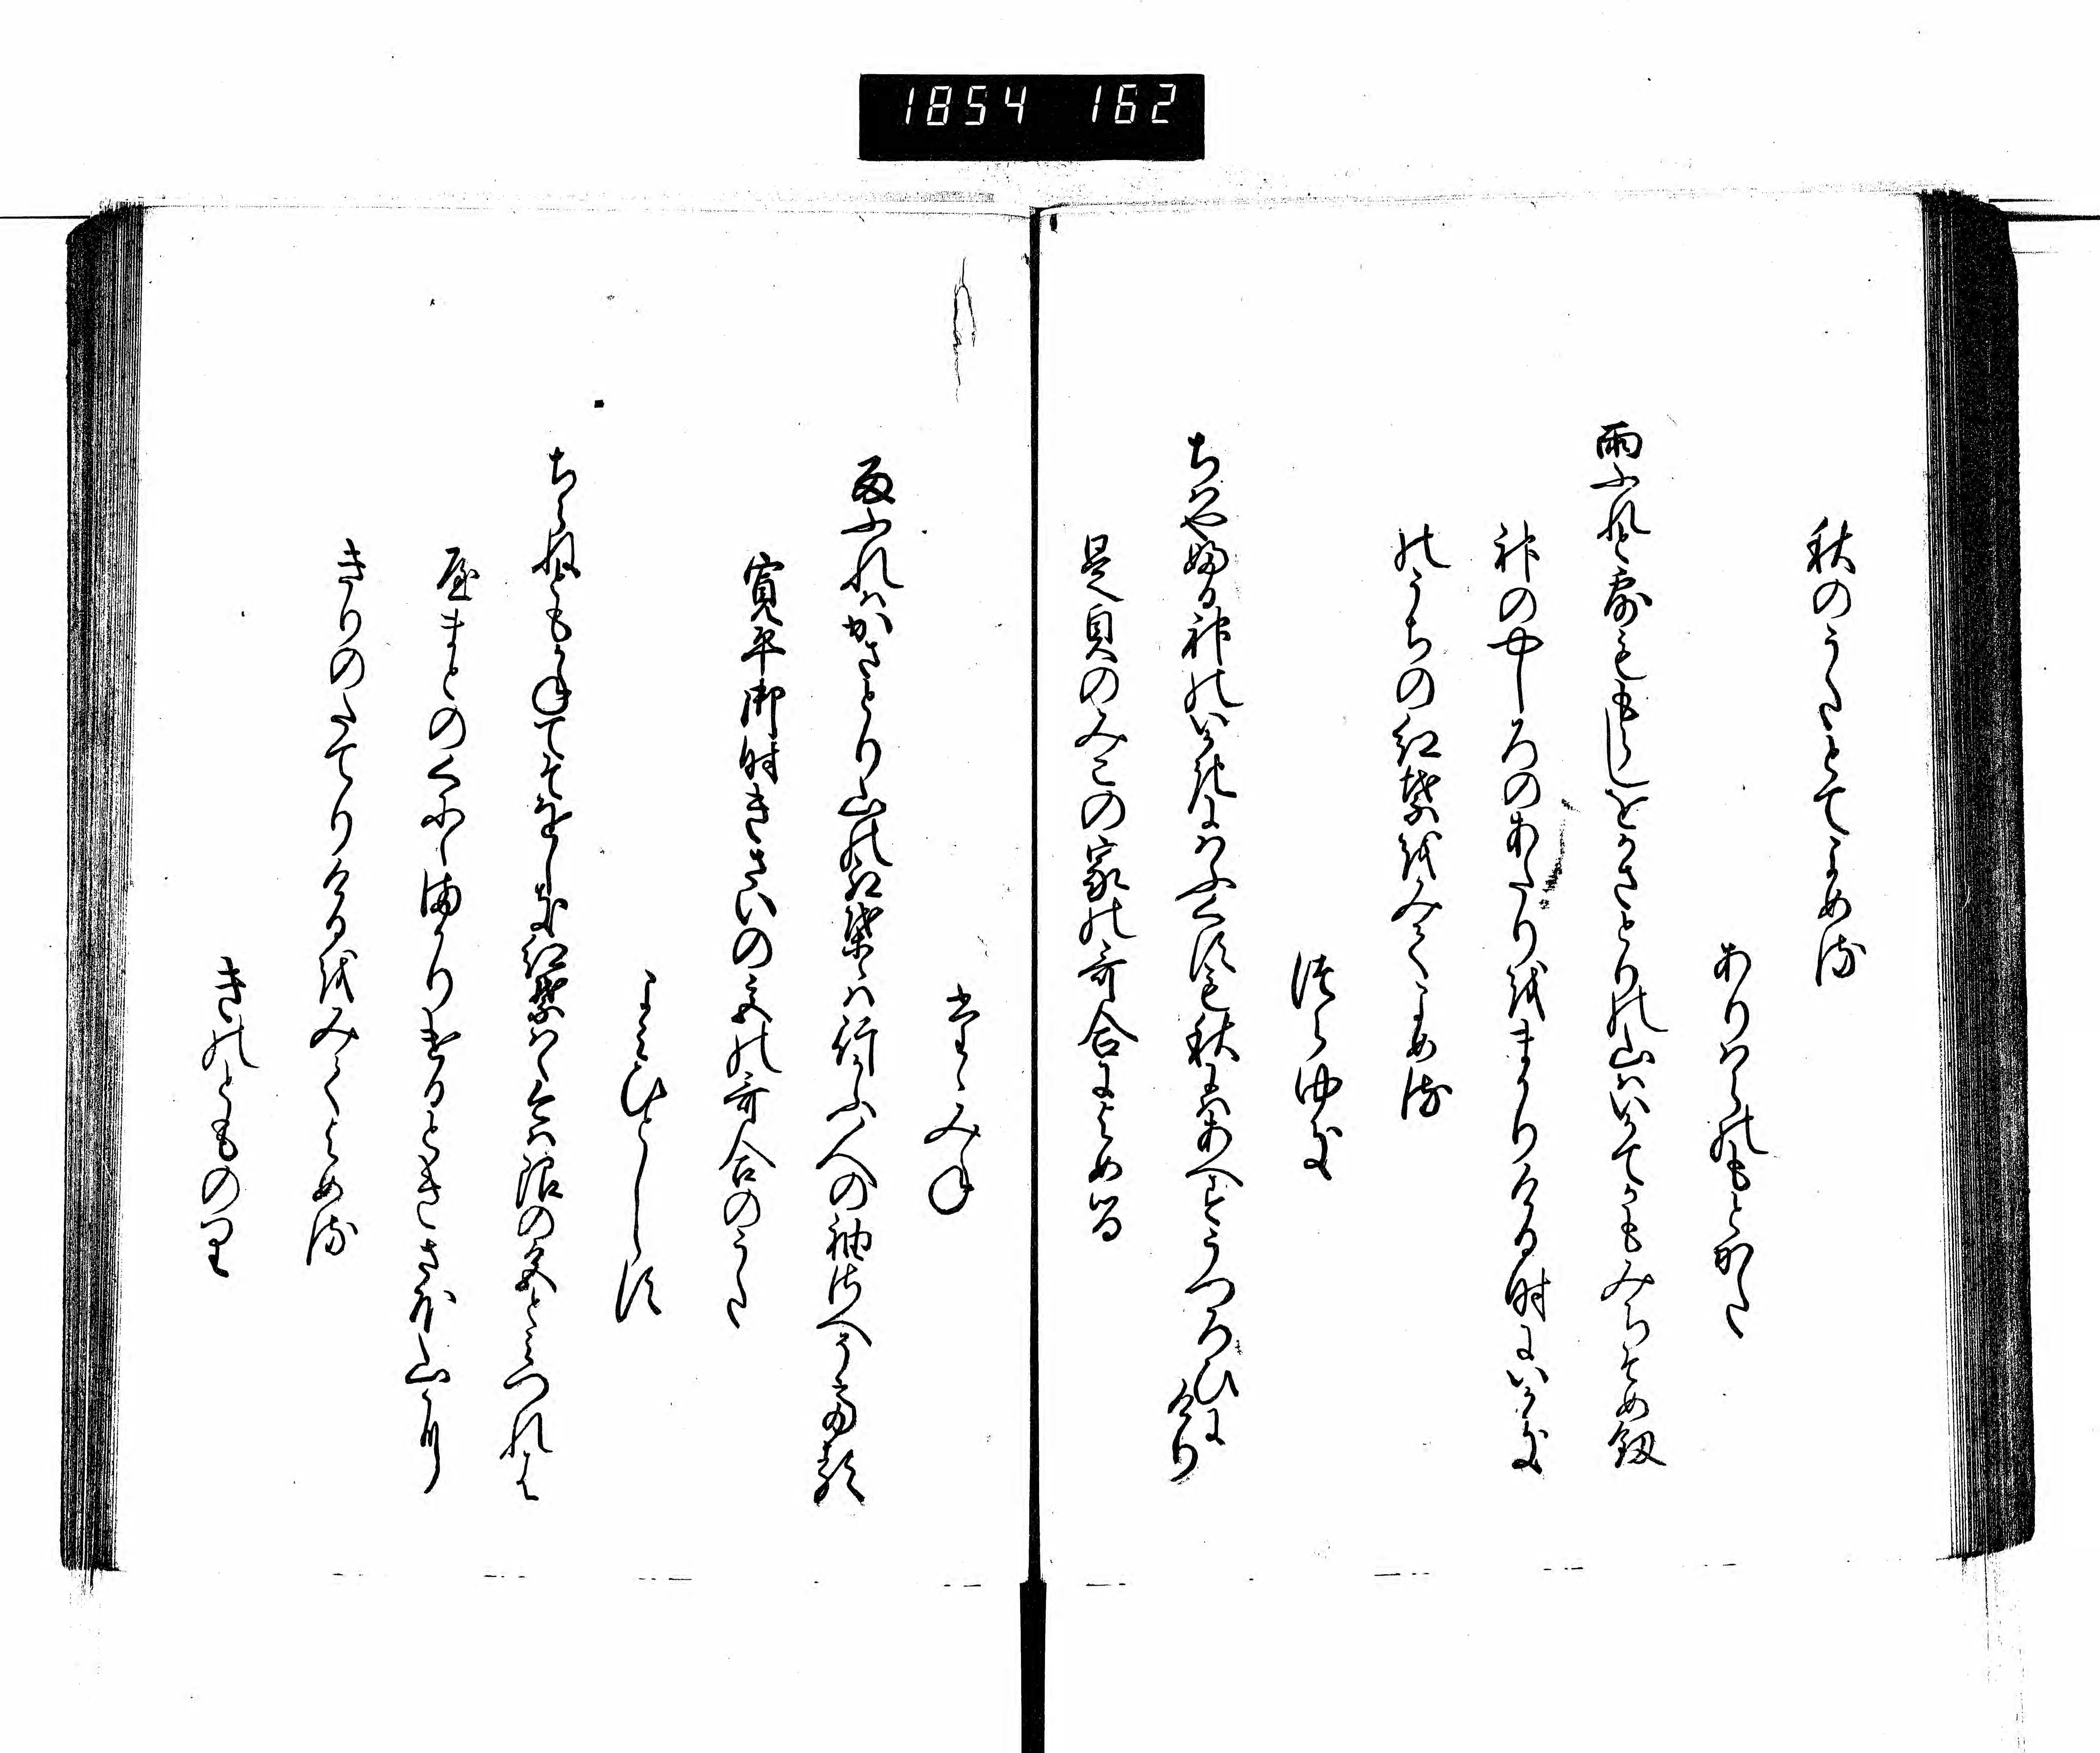 1854 162
秋のうたとてよめる
ありはらのもとかた
雨ふれと露ももらしをかさとりの山はいかてかもみちそめ釼
神のやしろのあたりをまかりける時にいかき
のうちの紅葉をみてよめる
つらゆき
ちはや婦る神のいかきにはふくすも秋にはあへすうつろひにけり
是貞のみこの家の哥合によめる
たゝみね
雨ふれはかさとり山の紅葉ゝは行かふ人の袖さへそてる
寛平御時きさいの宮の哥合のうた
よみひとしらす
ちらねともかねてそをしき紅葉はゝ今は限の色とみつれは
やまとのくにゝまかりけるときさほ山に
きりのたてりけるをみてよめる
きのとものり